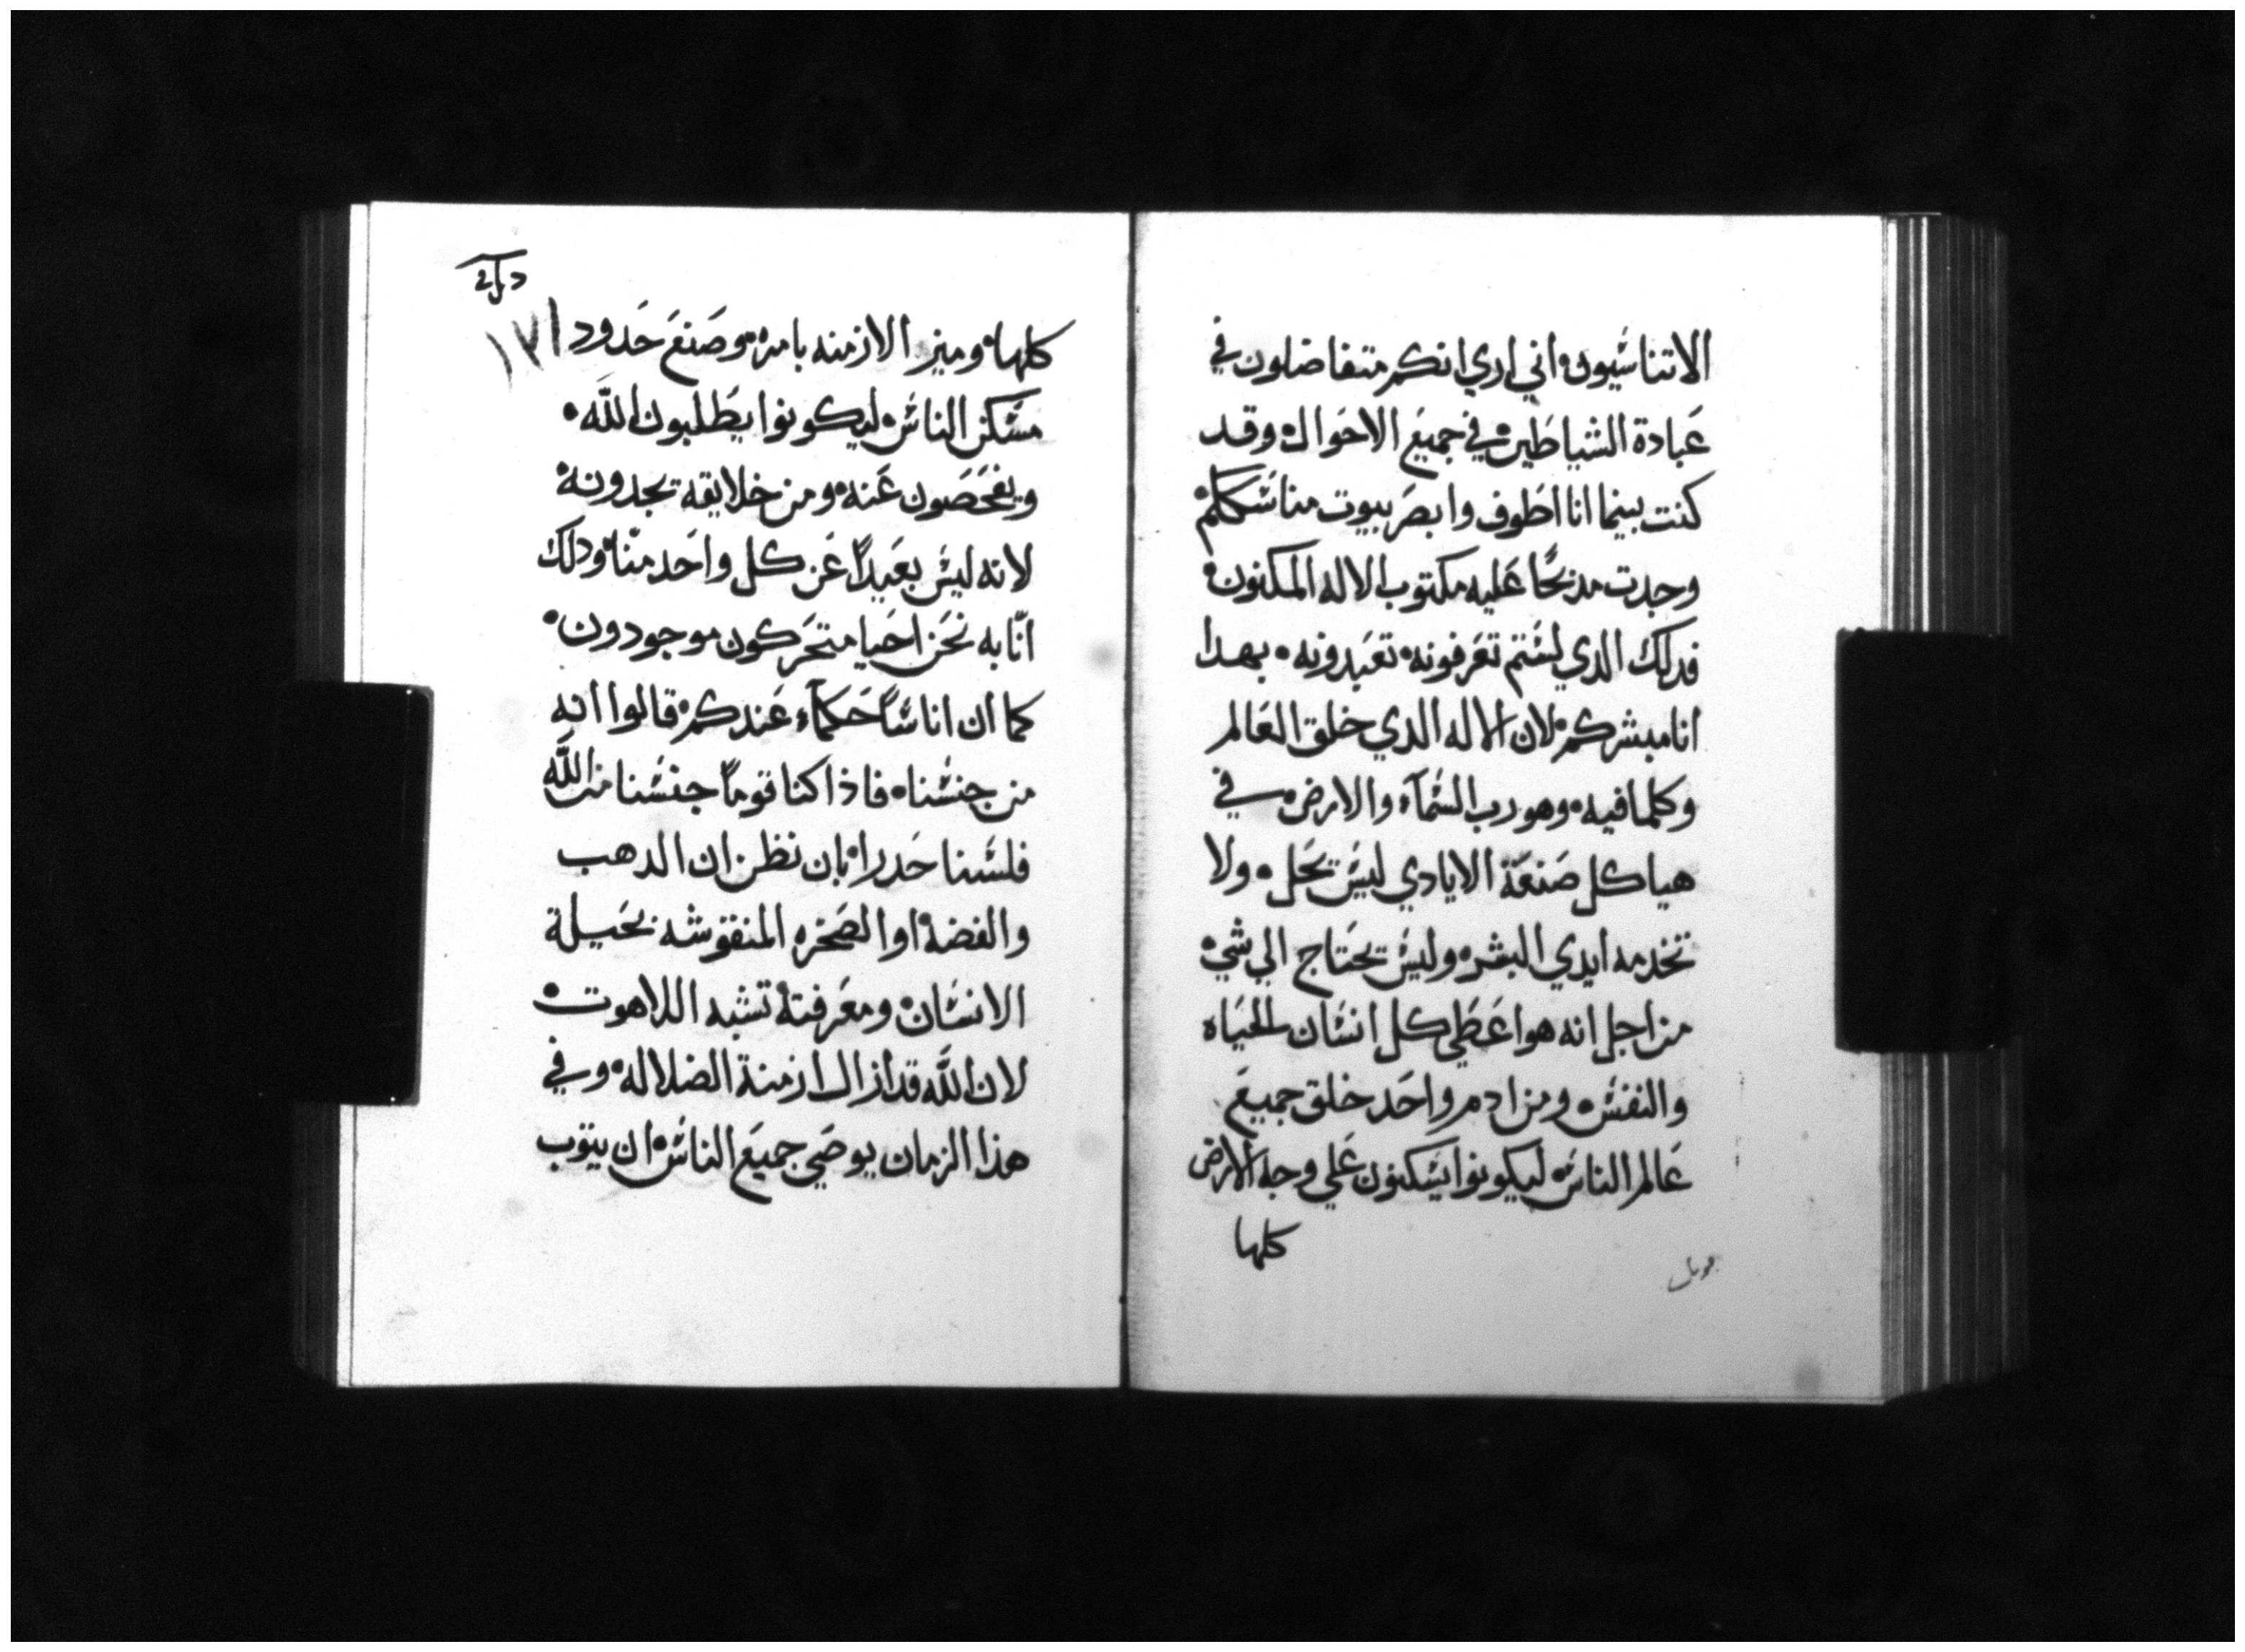 الاتناسيون اني اري انكم متفاضلون في
عبادة الشياطين في جميع الاحوال وقد
كنت بينما انا اطوف وابصر بيوت مناسككم
وجدت مذبحًا عليه مكتوب الاله المكنون
فدلك الدي لستم تعرفونه تعبدونه بهدا
انا مبشركم لان الاله الدي خلق العالم
وكلما فيه وهو رب السمآء والارض في
هياكل صنعة الايادي ليس يحل ولا
تخدمه ايدي البشر وليس يحتاج الي شي
من اجل انه هو اعطي كل انسان الحياه
والنفس ومن ادم واحد خلق جميع
عالم الناس ليكونوا يسكنون علي وجه الارض
كلها
كلها وميز الازمنه بامره وصنع حدود
١٧١
مسكن الناس ليكونوا يطلبون الله
ويفحصون عنه ومن خلايقه يجدونه
لانه ليس بعيداً عن كل واحد منّا ودلك
انّا به نحن احيا متحركون موجودون
كما ان اناسًا حكمآء عندكم قالوا انه
من جنسنا فاذا كنا قومًا جنسنا من الله
فلسنا حدرا بان نظن ان الدهب
والفضة او الصخره المنقوشه بحيلة
الانسان ومعرفته تشبه اللاهوت
لان الله قد ازال ازمنة الضلاله وفي
هذا الزمان يوصي جميع الناس ان يتوب